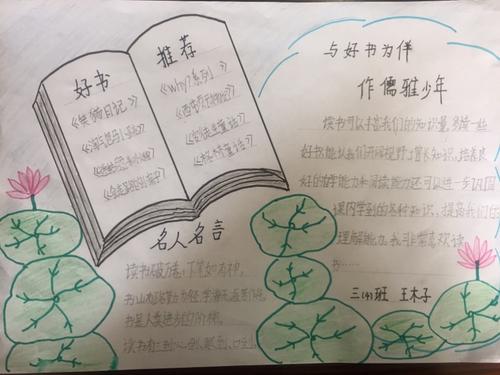 好书
推荐
《笑猫日记》
《why?系列》
名人名言
读书破万卷，下笔如有神。
书山有路勤为径，学海无涯苦作舟。
书是人类进步的阶梯。
读书有三到：心到、眼到、口到
与好书为伴
作儒雅少年
读书可以丰富我们的知识量，多读一些
好书能让我们开阔视野，增长知识，培养良
好的自学能力和阅读能力还可以进一步巩固
课内学到的各种知识，提高我们的
理解能力。我非常喜欢读
书……
三(4)班 王木子